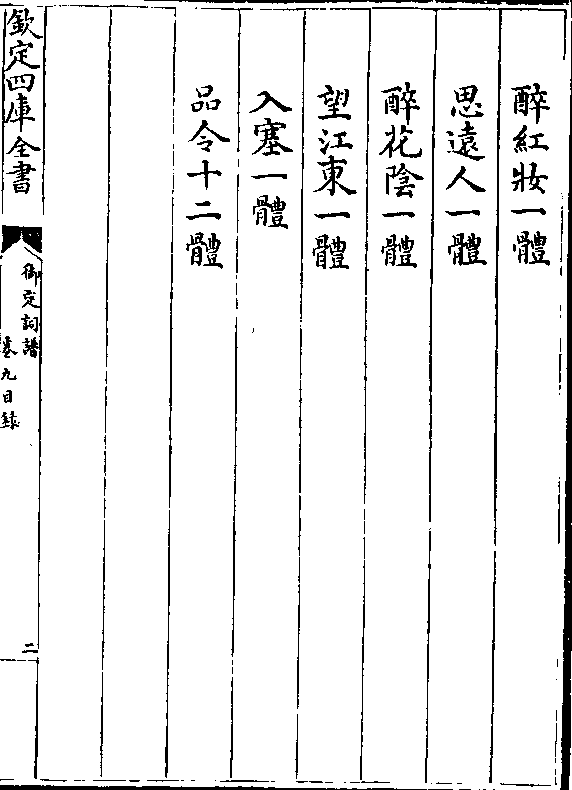 醉紅妝一體
思遠人一體
醉花陰一體
望江東一體
入塞一體
品令十二體
欽定四庫全書
御定詞譜
卷九目錄
二